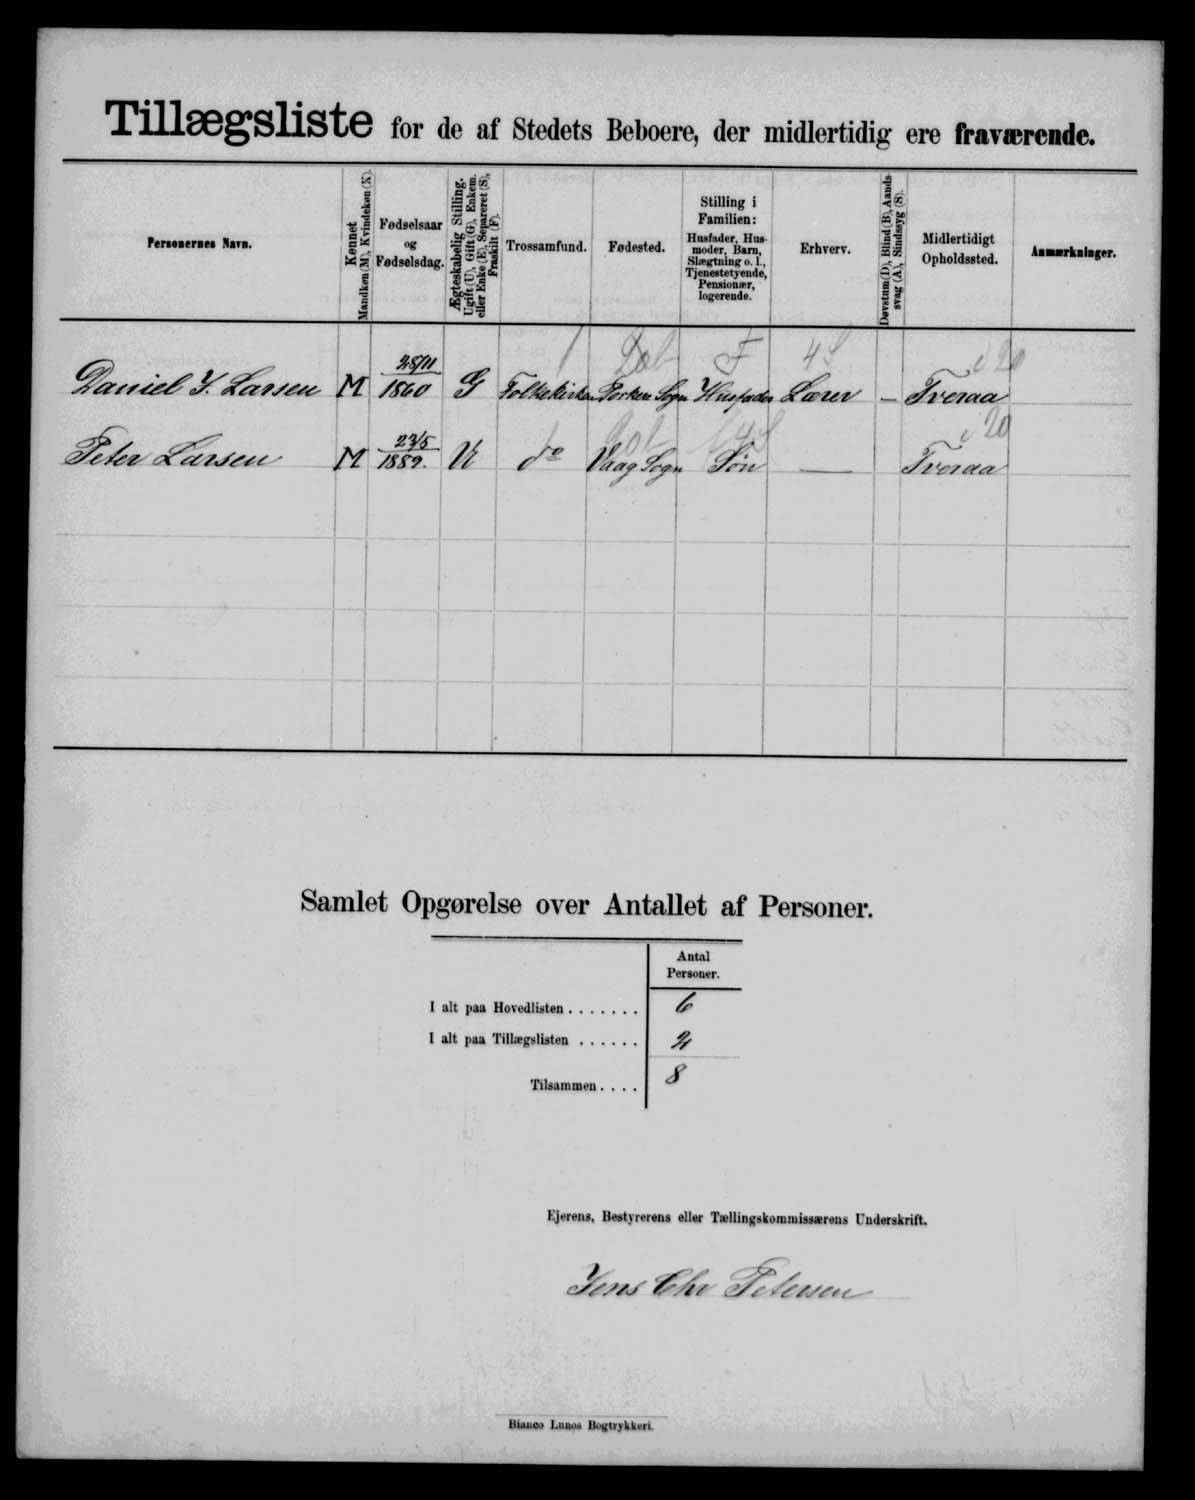 Tillægsliste for de af Stedets Beboere, der midlertidig ere fraværende.
Personernes Navn.
Kønnet
Mandkøn (M), Kvindekøn (K).
Fødselsaar
og
Fødselsdag.
Ægteskabelig Stilling.
Ugift (U), Gift (G), Enkem.
eller Enke (E), Separeret (S),
Fraskilt (F).
Trossamfund.
Fødested.
Stilling i
Familien:
Husfader, Hus-
moder, Barn,
Slægtning o. l.,
Tjenestetyende,
Pensionær,
logerende.
Erhverv.
Døvstum (D), Blind (B), Aands-
svag (A), Sindssyg (S).
Midlertidigt
Opholdssted.
Anmærkninger.
F 4 20
Daniel J. Larsen M 28/11 1860 G Folkekirken Porkere Sogn Husfader Lærer — Tveraa
20
Peter Larsen M 23/5 1889. U do Vaag Sogn Søn — Tveraa
Samlet Opgørelse over Antallet af Personer.
Antal
Personer.
I alt paa Hovedlisten . . . . . . . 6
I alt paa Tillægslisten . . . . . . 2
Tilsammen . . . . 8
Ejerens, Bestyrerens eller Tællingskommissærens Underskrift.
Jens Chr Petersen
Bianco Lunos Bogtrykkeri.